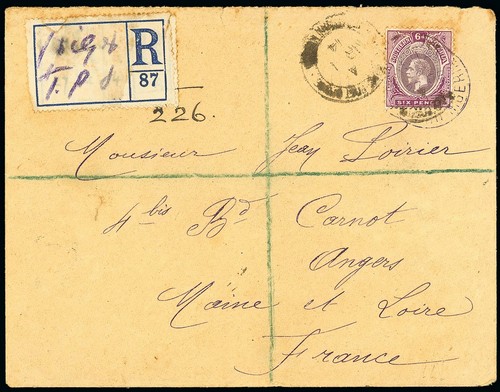 R
T.P
87
226.
6d
SIX PENCE
Monsieur Jean Poirier
4 bis Bd Carnot
Angers
Maine et Loire
France